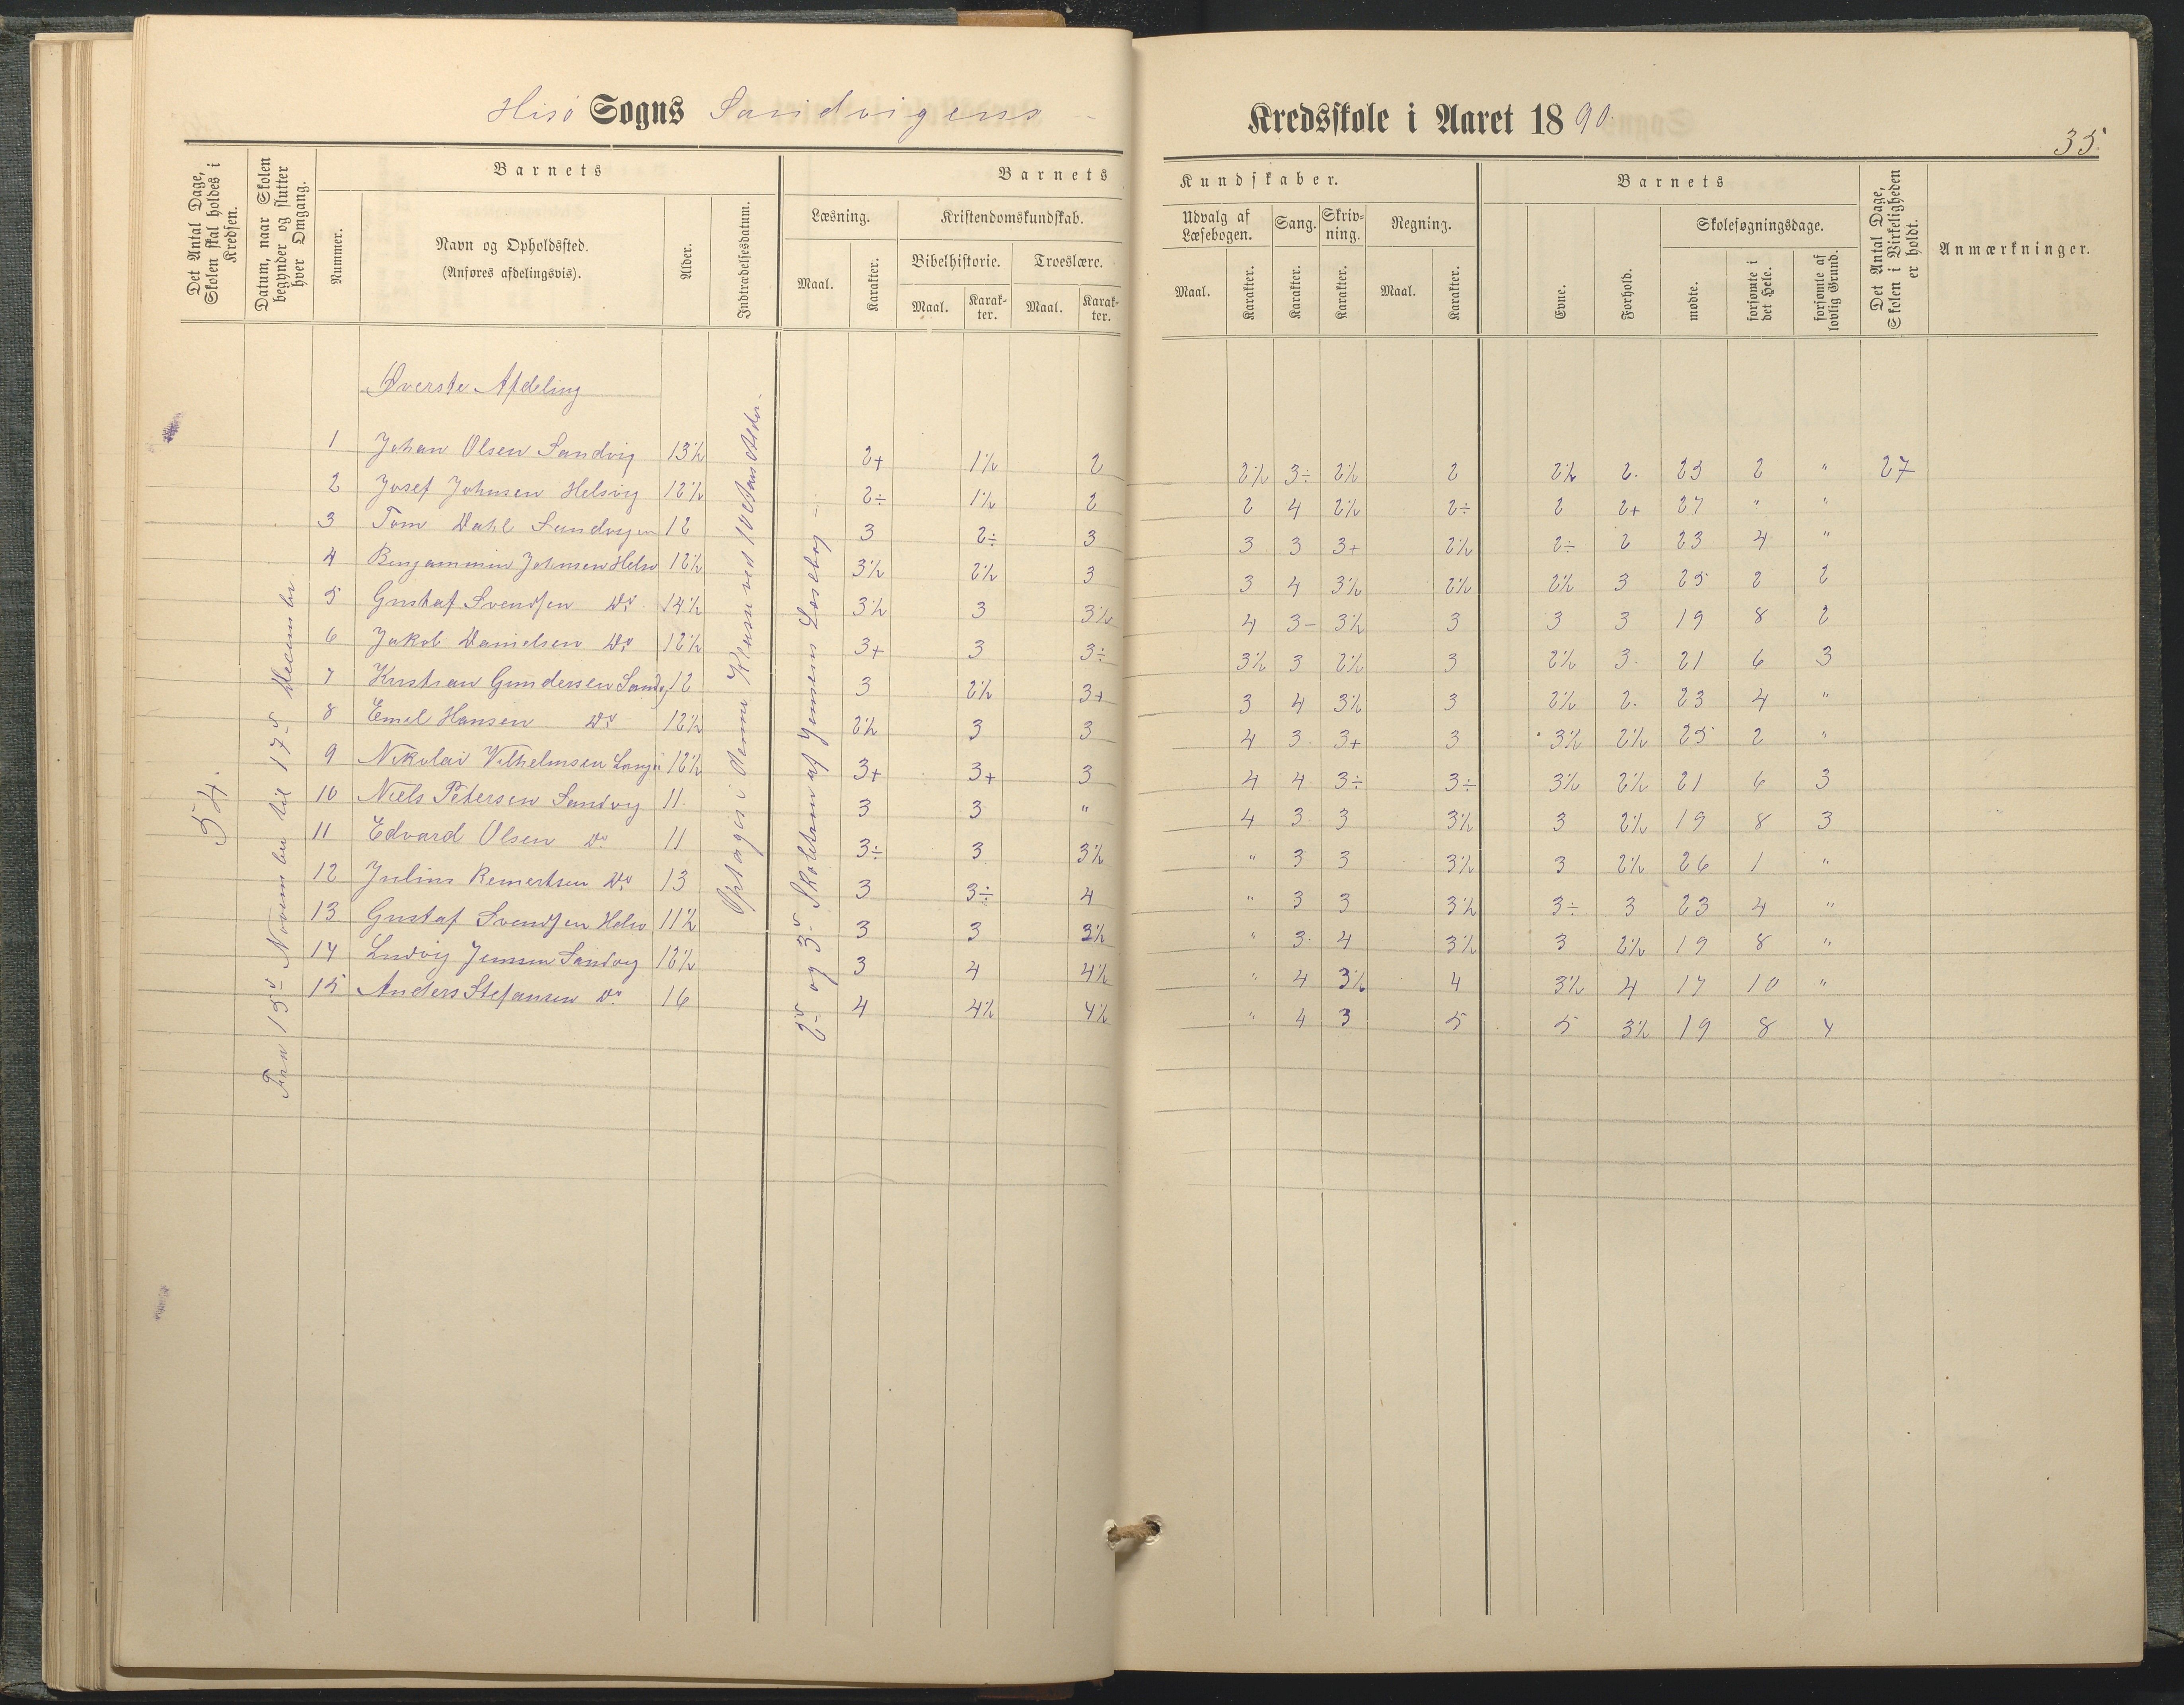 Hisö Sogns Sandvigens
Kredsskole i Aaret 1890.
35.
Det Antal Dage, Skolen skal holdes i Kredsen.
Datum, naar Skolen begynder og slutter hver Omgang.
Barnets
Nummer.
Navn og Opholdssted.
(Anføres afdelingsvis).
Alder.
Indtrædelsesdatum.
Barnets
Læsning.
Maal.
Karakter.
Kristendomskundskab.
Bibelhistorie.
Maal.
Karakter.
Troeslære.
Maal.
Karakter.
Kundskaber.
Udvalg af Læsebogen.
Maal.
Karakter.
Sang.
Karakter.
Skrivning.
Karakter.
Regning.
Maal.
Karakter.
Barnets
Evne.
Forhold.
Skolesøgningsdage.
mødte.
forsømte i det Hele.
forsømte af lovlig Grund.
Det Antal Dage, Skolen i Virkeligheden er holdt.
Anmærkninger.
54.
Fra 15de November til 17de December
Optages i denne Klasse ved 10 Aars Alder.
2den og 3die Skoletrin af Jensens Læsebog
Øverste Afdeling
1 Johan Olsen Sandvig 13½ 2+ 1½ 2 2½ 3÷ 2½ 2 2½ 2. 25 2 " 27
2 Josef Johnsen Helsvig 12½ 2÷ 1½ 2 2 4 2½ 2÷ 2 2+ 27 " "
3 Tom Dahl Sandvigen 12 3 2÷ 3 3 3 3+ 2½ 2÷ 2 23 4 "
4 Benjammin Johnsen Helsv 12½ 3½ 2½ 3 3 4 3½ 2½ 2½ 3 25 2 2
5 Gustaf Svendsen Do 14½ 3½ 3 3½ 4 3- 3½ 3 3 3 19 8 2
6 Jakob Danielsen Do 12½ 3+ 3 3÷ 3½ 3 2½ 3 2½ 3. 21 6 3
7 Kristian Gundersen Sandv 12 3 2½ 3+ 3 4 3½ 3 2½ 2. 23 4 "
8 Emel Hansen Do 12½ 2½ 3 3 4 3 3+ 3 3½ 2½ 25 2 "
9 Nikolai Vilhelmsen 12½ 3+ 3+ 3 4 4 3÷ 3÷ 3½ 2½ 21 6 3
10 Niels Petersen Sandvig 11. 3 3 " 4 3 3 3½ 3 2½ 19 8 3
11 Edvard Olsen Do 11 3÷ 3 3½ " 3 3 3½ 3 2½ 26 1 "
12 Julius Remertsen Do 13 3 3÷ 4 " 3 3 3½ 3÷ 3 23 4 "
13 Gustaf Svendsen Helsv 11½ 3 3 3½ " 3. 4 3½ 3 2½ 19 8 "
14 Ludvig Jensen Sandvig 12½ 3 4 4½ " 4 3½ 4 3½ 4 17 10 "
15 Anders Stefansen Do 16 4 4½ 4½ " 4 3 5 5 3½ 19 8 4